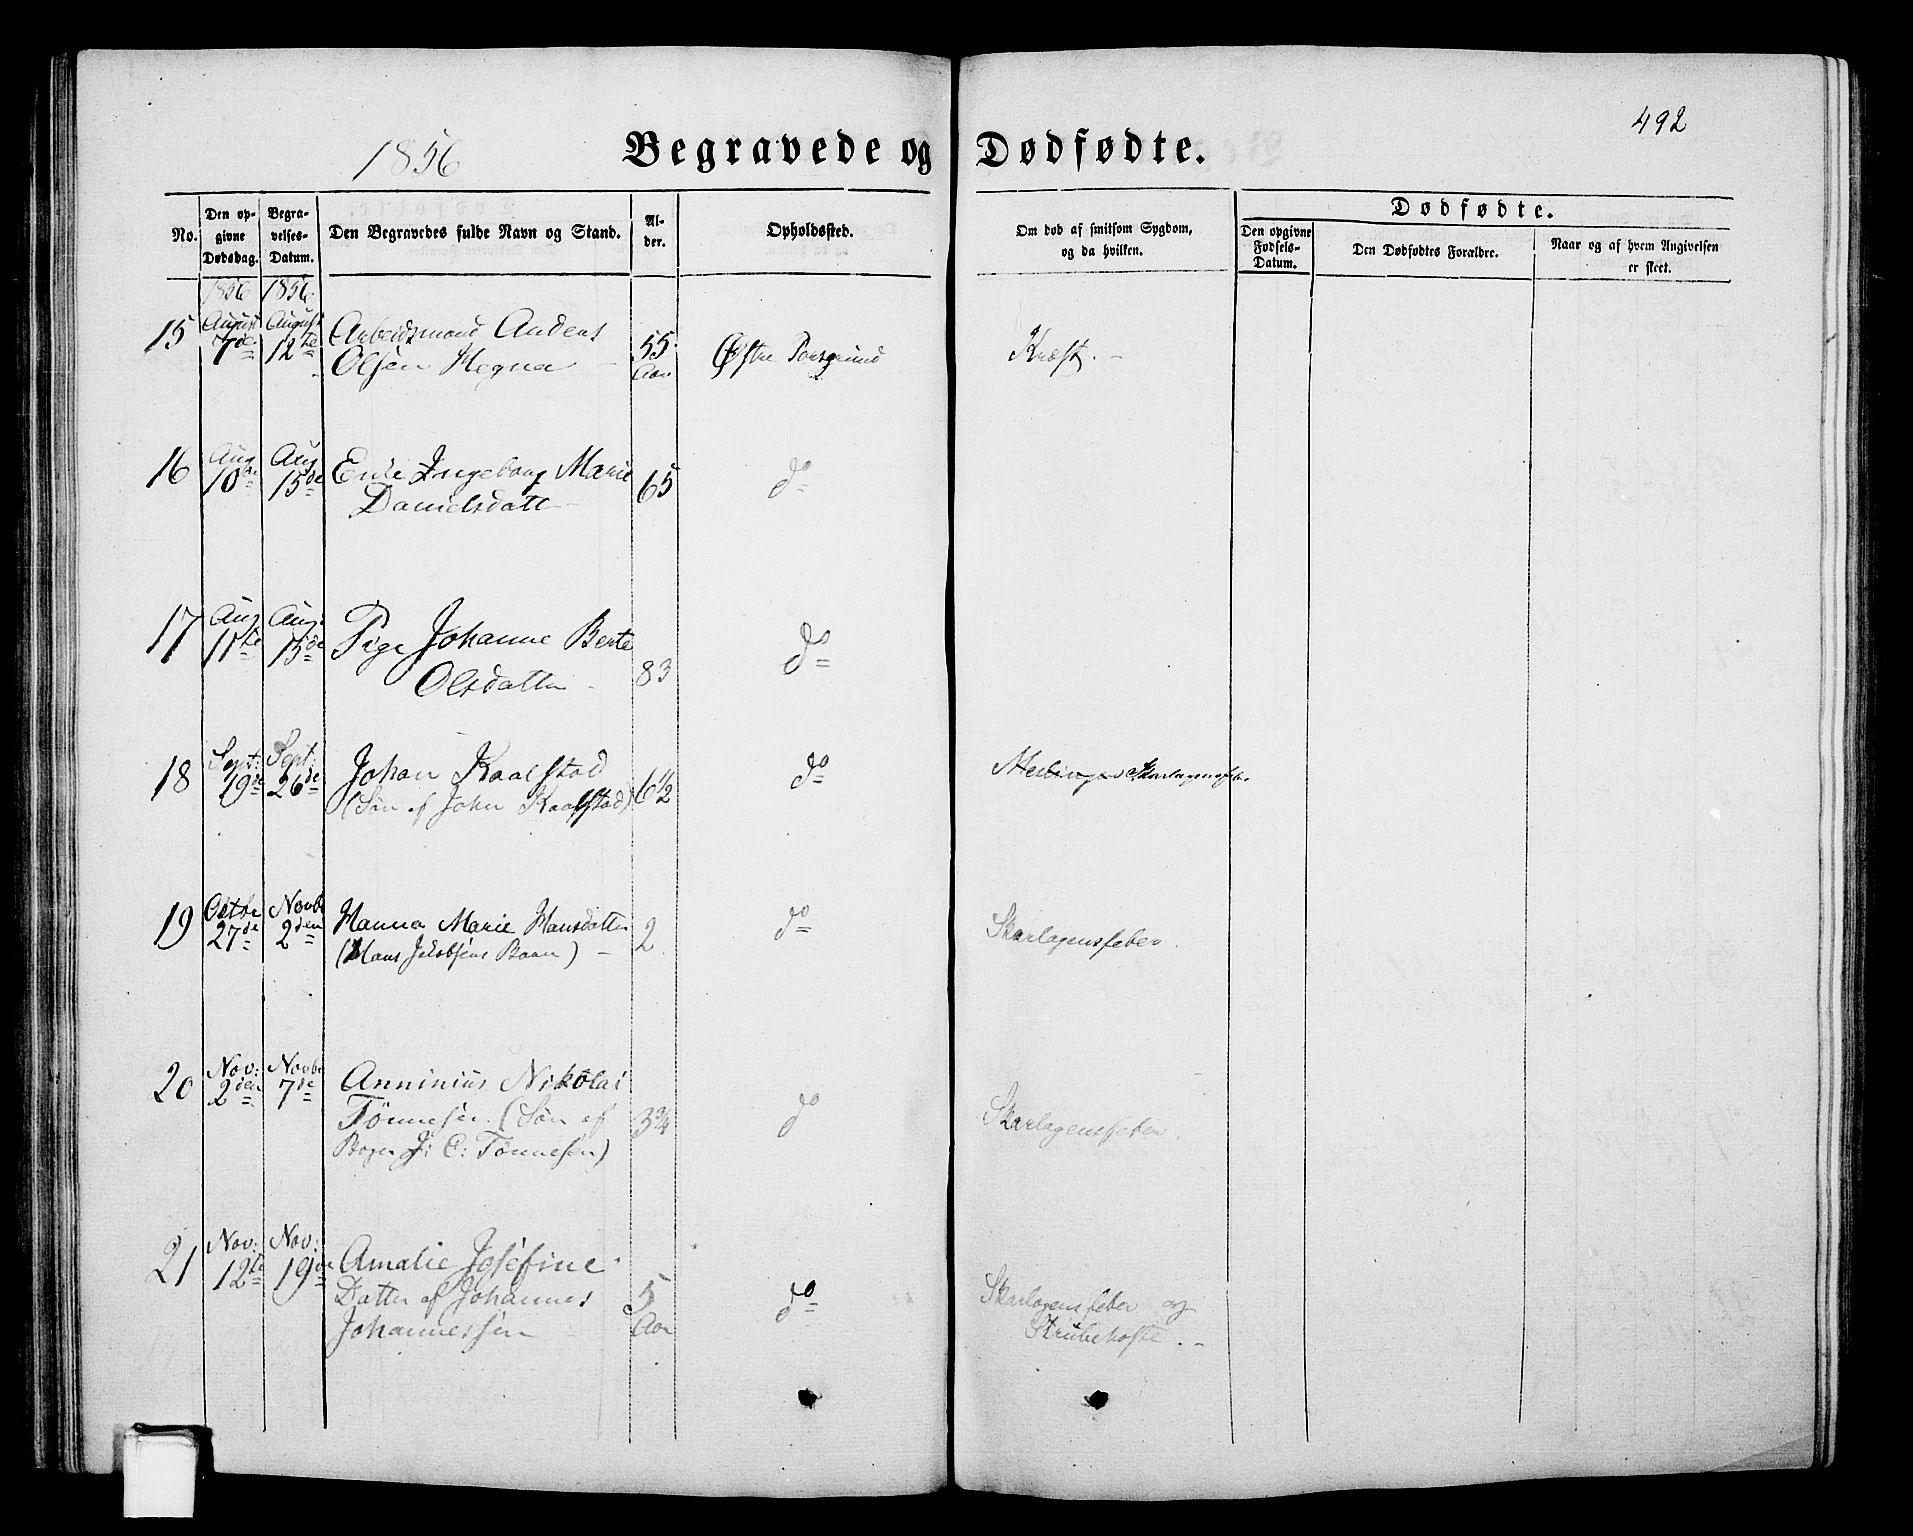 492
1856 Begravede og Dødfødte.
No. Den opgivne Dødsdag. Begravelses-Datum. Den Begravedes fulde Navn og Stand. Alder. Opholdssted. Om død af smitsom Sygdom, og da hvilken. Dødfødte.
Den opgivne Fødsels-Datum. Den Dødfødtes Forældre. Naar og af hvem Angivelsen er skeet.
1856 1856
15 August 7de August 12te Arbeidsmand Anders
Olsen Hegna 55 Aar Østre Porsgrund Kræft.
16 Aug 10de Aug 15de Enke Ingeborg Marie
Danielsdatt 65 do
17 Aug 11te Aug 15de Pige Johanne Berte
Olsdatter 83 do
18 Sept: 19de Sept: 26de Johan Kaalstad
(Søn af John Kaalstad) 6 1/2 do Skarlagensfeb.
19 Octbe 27de Novb 2den Hanna Marie Hansdatter
(Hans Jakobsens Baan) 2 do Skarlagensfeber.
20 Nov: 2den Novbe 7de Anninius Nikolai
Tønnesen (Søn af
Bager J: C: Tønnesen) 3 3/4 do Skarlagensfeber.
21 Nov: 12te Nov: 19de Amalie Josefine
Datter af Johannes
Johannessen 5 Aar do Skarlagensfeber og
Strubehoste.